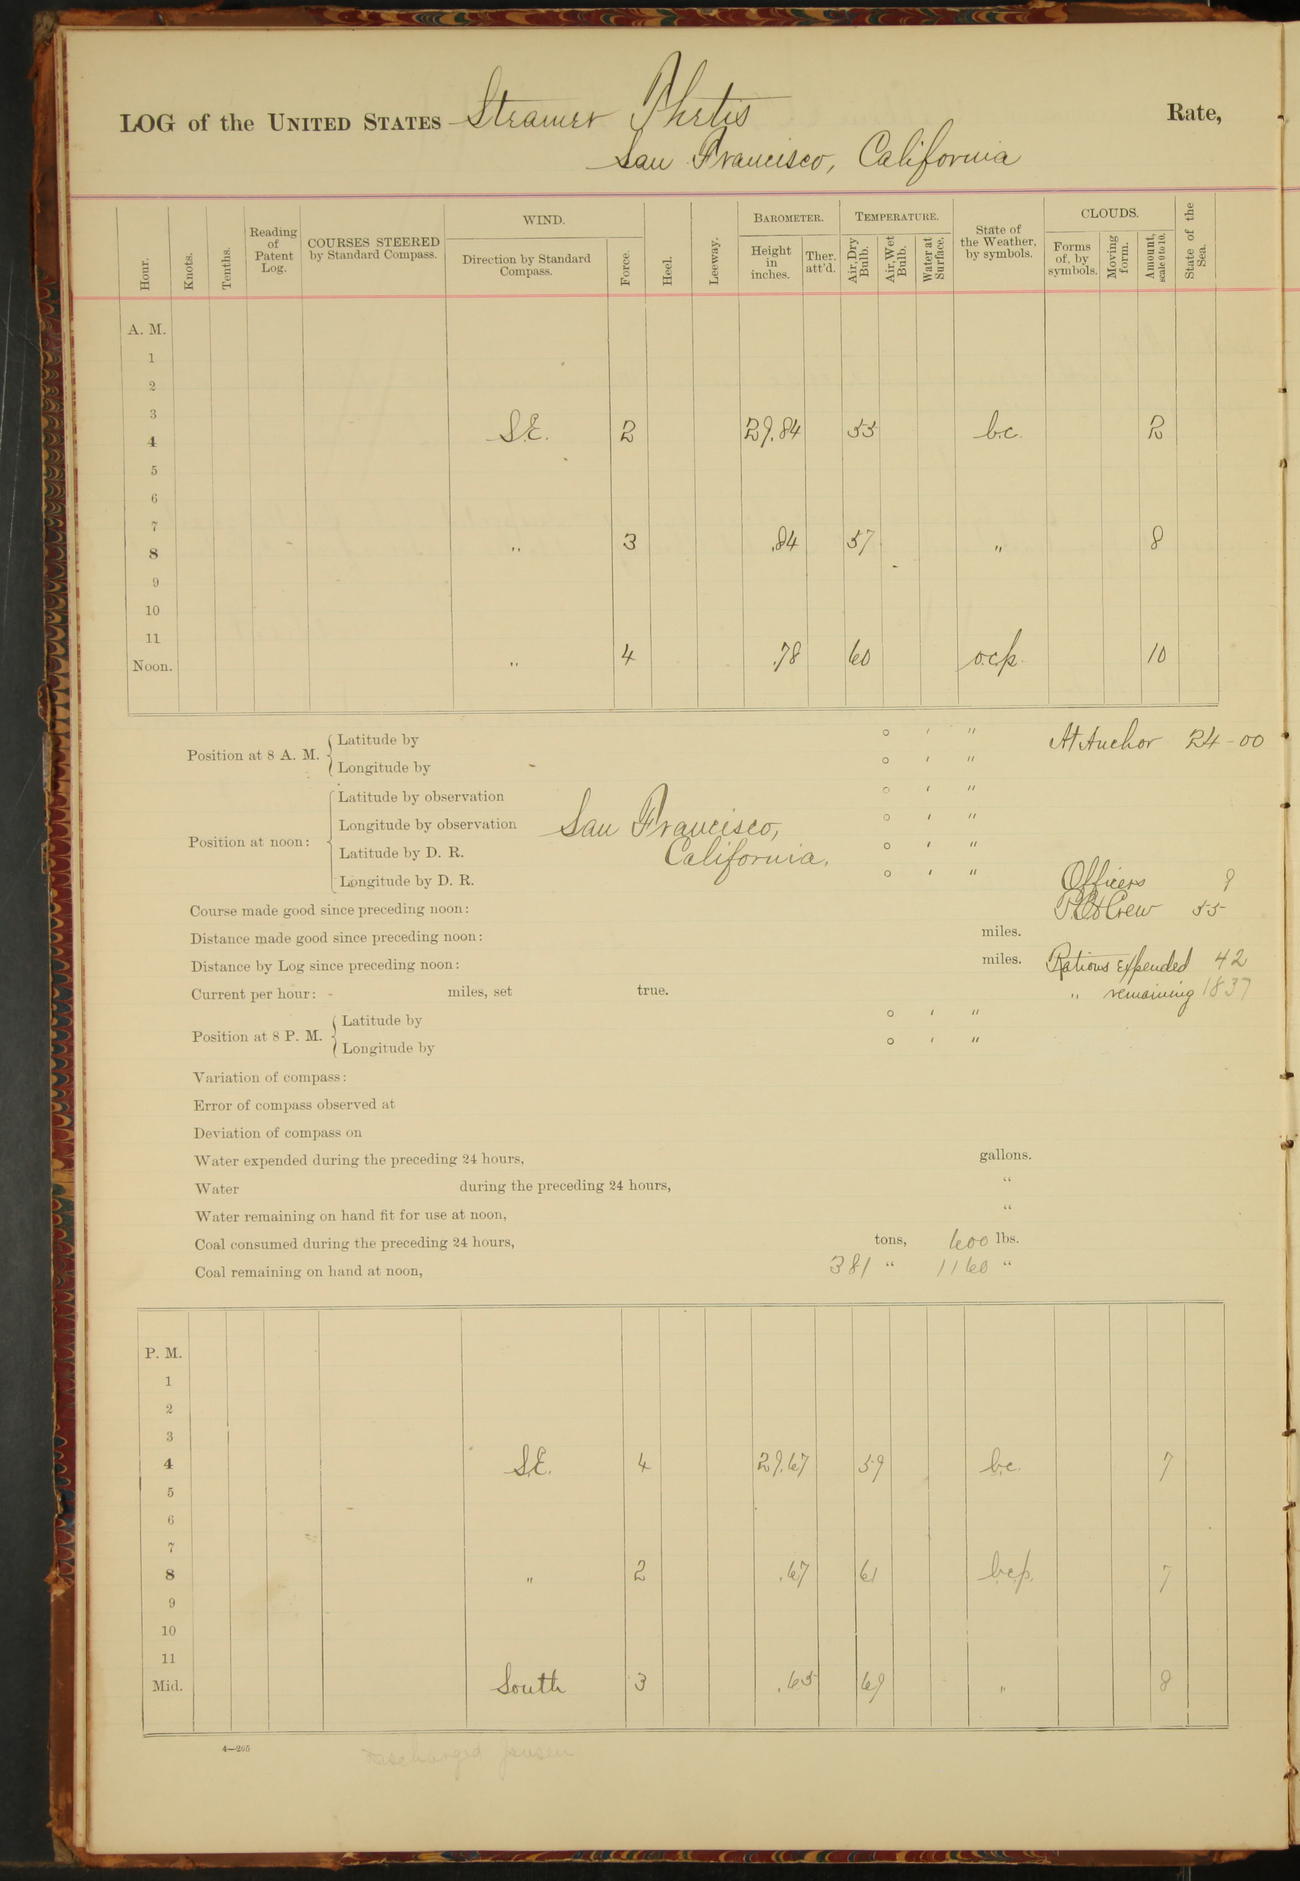 LOG of the UNITED STATES Steamer Thetis Rate,
San Francisco, California
Hour. Knots. Tenths. Reading of Patent Log. COURSES STEERED by Standard Compass. WIND. Direction by Standard Compass. Force. Heel. Leeway. BAROMETER. Height in inches. Ther. att'd. TEMPERATURE. Air, Dry Bulb. Air, Wet Bulb. Water at Surface. State of the Weather, by symbols. CLOUDS. Forms of, by symbols. Moving form. Amount, scale 0 to 10. State of the Sea.
A. M.
1
2
3
4 S.E. 2 29.84 55 b.c. 2
5
6
7
8 " 3 .84 57 " 8
9
10
11
Noon. " 4 .78 60 o.c.p. 10
Position at 8 A. M. Latitude by ° ' " At Anchor 24-00
Longitude by ° ' "
Position at noon: Latitude by observation ° ' "
Longitude by observation San Francisco, ° ' "
Latitude by D. R. California. ° ' "
Longitude by D. R. ° ' " Officers 9
Course made good since preceding noon: Crew 55
Distance made good since preceding noon: miles.
Distance by Log since preceding noon: miles. Rations Expended 42
Current per hour: - miles, set true. " remaining 1837
Position at 8 P. M. Latitude by ° ' "
Longitude by ° ' "
Variation of compass:
Error of compass observed at
Deviation of compass on
Water expended during the preceding 24 hours, gallons.
Water during the preceding 24 hours, "
Water remaining on hand fit for use at noon, "
Coal consumed during the preceding 24 hours, tons, 600 lbs.
Coal remaining on hand at noon, 381 " 1160 "
P. M.
1
2
3
4 S.E. 4 29.67 59 b.c. 7
5
6
7
8 " 2 .67 61 b.c.p. 7
9
10
11
Mid. South 3 .65 69 " 8
4—205
Discharged Jansen